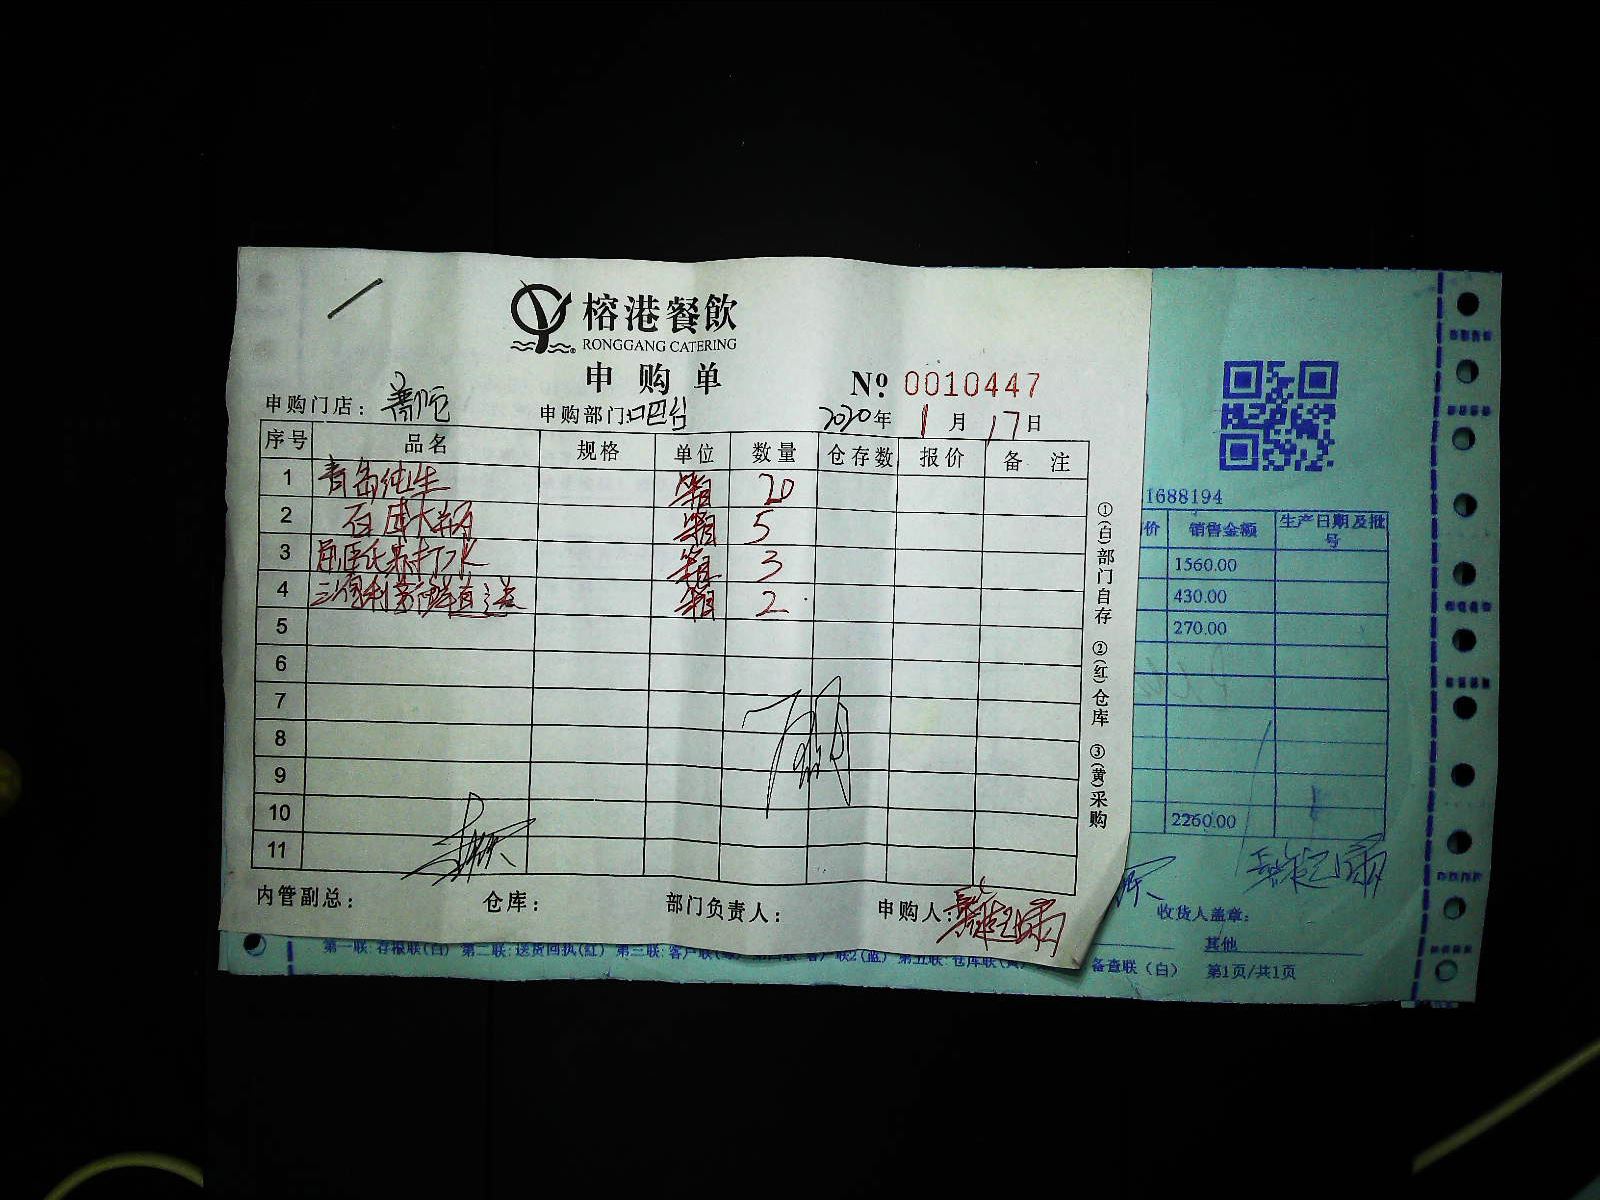 榕港餐飲
RONGGANG CATERING
申购单
№ 0010447
申购门店：
申购部门：吧台
2020年 1月 17日
序号 品名 规格 单位 数量 仓存数 报价 备注
1 青岛纯生 箱 20
2 百威大瓶 箱 5
3 屈臣氏苏打水 箱 3
4 箱 2
5
6
7
8
9
10
11
内管副总： 仓库： 部门负责人： 申购人：
①(白)部门自存 ②(红)仓库 ③(黄)采购
1688194
价 销售金额 生产日期及批号
1560.00
430.00
270.00
2260.00
收货人盖章：
其他
第一联：存根联(白) 第二联：送货回执(红) 第三联：客户联
备查联（白） 第1页/共1页